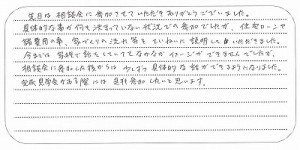 先日は相談会に参加させていただきありがとうございました。
具体的な事が何も決まっていない状況での参加でしたが、住宅ローンや
諸費用の事、家づくりの流れ等をていねいに説明していただきました。
今までは家族で話をしていてもなかなかイメージができませんでしたが、
相談会に参加した後からは少しずつ具体的な話ができるようになりました。
完成見学会がある際には是非参加したいと思います。